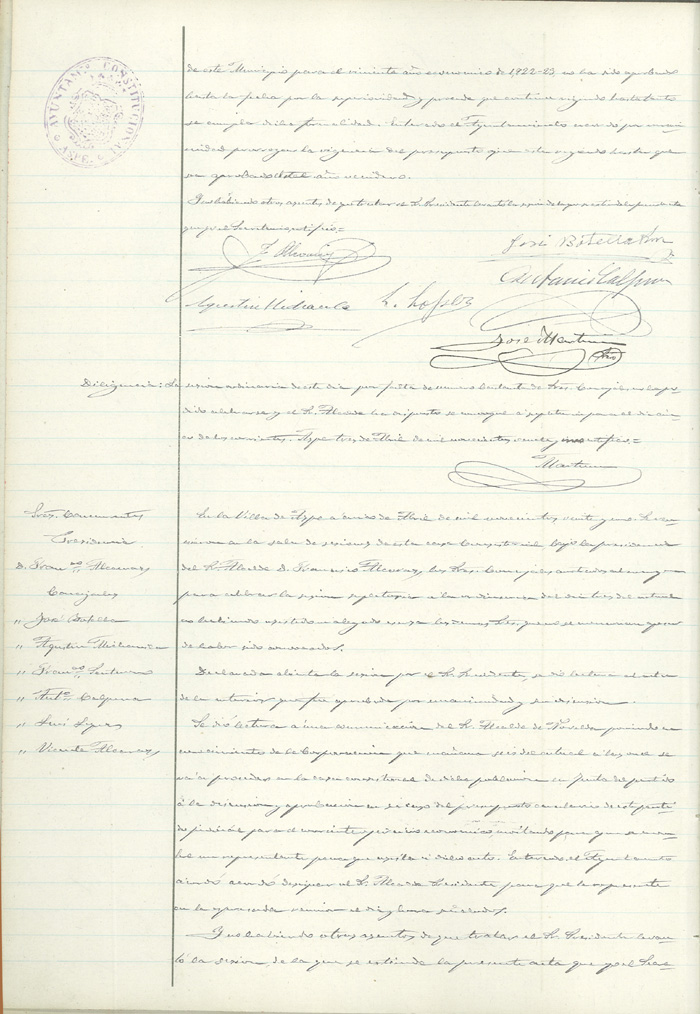 AYUNTAMº CONSTITUCIONAL
ASPE
de este Municipio para el viniente año economico de 1,922-23, no ha sido aprobado
hasta la fecha por la superioridad, y procede que continue rigiendo hasta tanto
se cumpla dicha formalidad. Enterado el Ayuntamiento acordó por unani
midad prorrogar la vigencia del presupuesto que esta rigiendo hasta que
sea aprobado el del año venidero.
Y no habiendo otros asuntos de que tratar el Sr. Presidente levantó la sesion de la que se extiende la presente
que yo el Secretario certifico.=
F. Alcaraz
José Botella
Antonio Calpena
Agustin Mira
L. Lopez
José Martinez
Diligencia: La sesion ordinaria de este dia por falta de numero bastante de Sres. Concejales no ha po
dido celebrarse y el Sr. Alcalde ha dispuesto se convoque a supletoria para el dia cin
co de los corrientes. Aspe tres de Abril de mil novecientos certifico=
Martinez
Sres. Concurrentes
Presidencia
D. Francco Alcaraz
Concejales
" José Botella
" Agustin
" Francco
" Antº Calpena
" Luis Lopez
" Vicente Alcaraz
En la Villa de Aspe a cinco de Abril de mil novecientos veinte y uno. Se reu
nieron en la sala de sesiones de esta casa Consistorial bajo la presidencia
del Sr. Alcalde D. Francisco Alcaraz, los Sres. Concejales anotados al margen
para celebrar la sesion supletoria a la ordinaria del dia tres del actual
no habiendo asistido ni alegado escusa los demas Sres. que no se mencionan a pesar
de haber sido convocados.
Declarada abierta la sesion por el Sr. Presidente, se dió lectura al acta
de la anterior que fue aprobada por unanimidad y sin discusion.
Se dió lectura a una comunicacion del Sr. Alcalde de Novelda poniendo en
conocimiento de la Corporacion que mañana seis del actual a las once se
va a proceder en la casa consistorial de dicha poblacion en Junta de partido
á la discusion y aprobacion en su caso del presupuesto carcelario de este parti
do judicial para el corriente ejercicio economico, invitando para que se nom
bre un representante para que asista a dicho acto. Enterado el Ayuntamiento
acordó designar al Sr. Alcalde Presidente para que le represente
en la expresada reunion el dia y hora señalados.
Y no habiendo otros asuntos de que tratar el Sr. Presidente levan
tó la sesion de la que se extiende la presente acta que yo el Secre